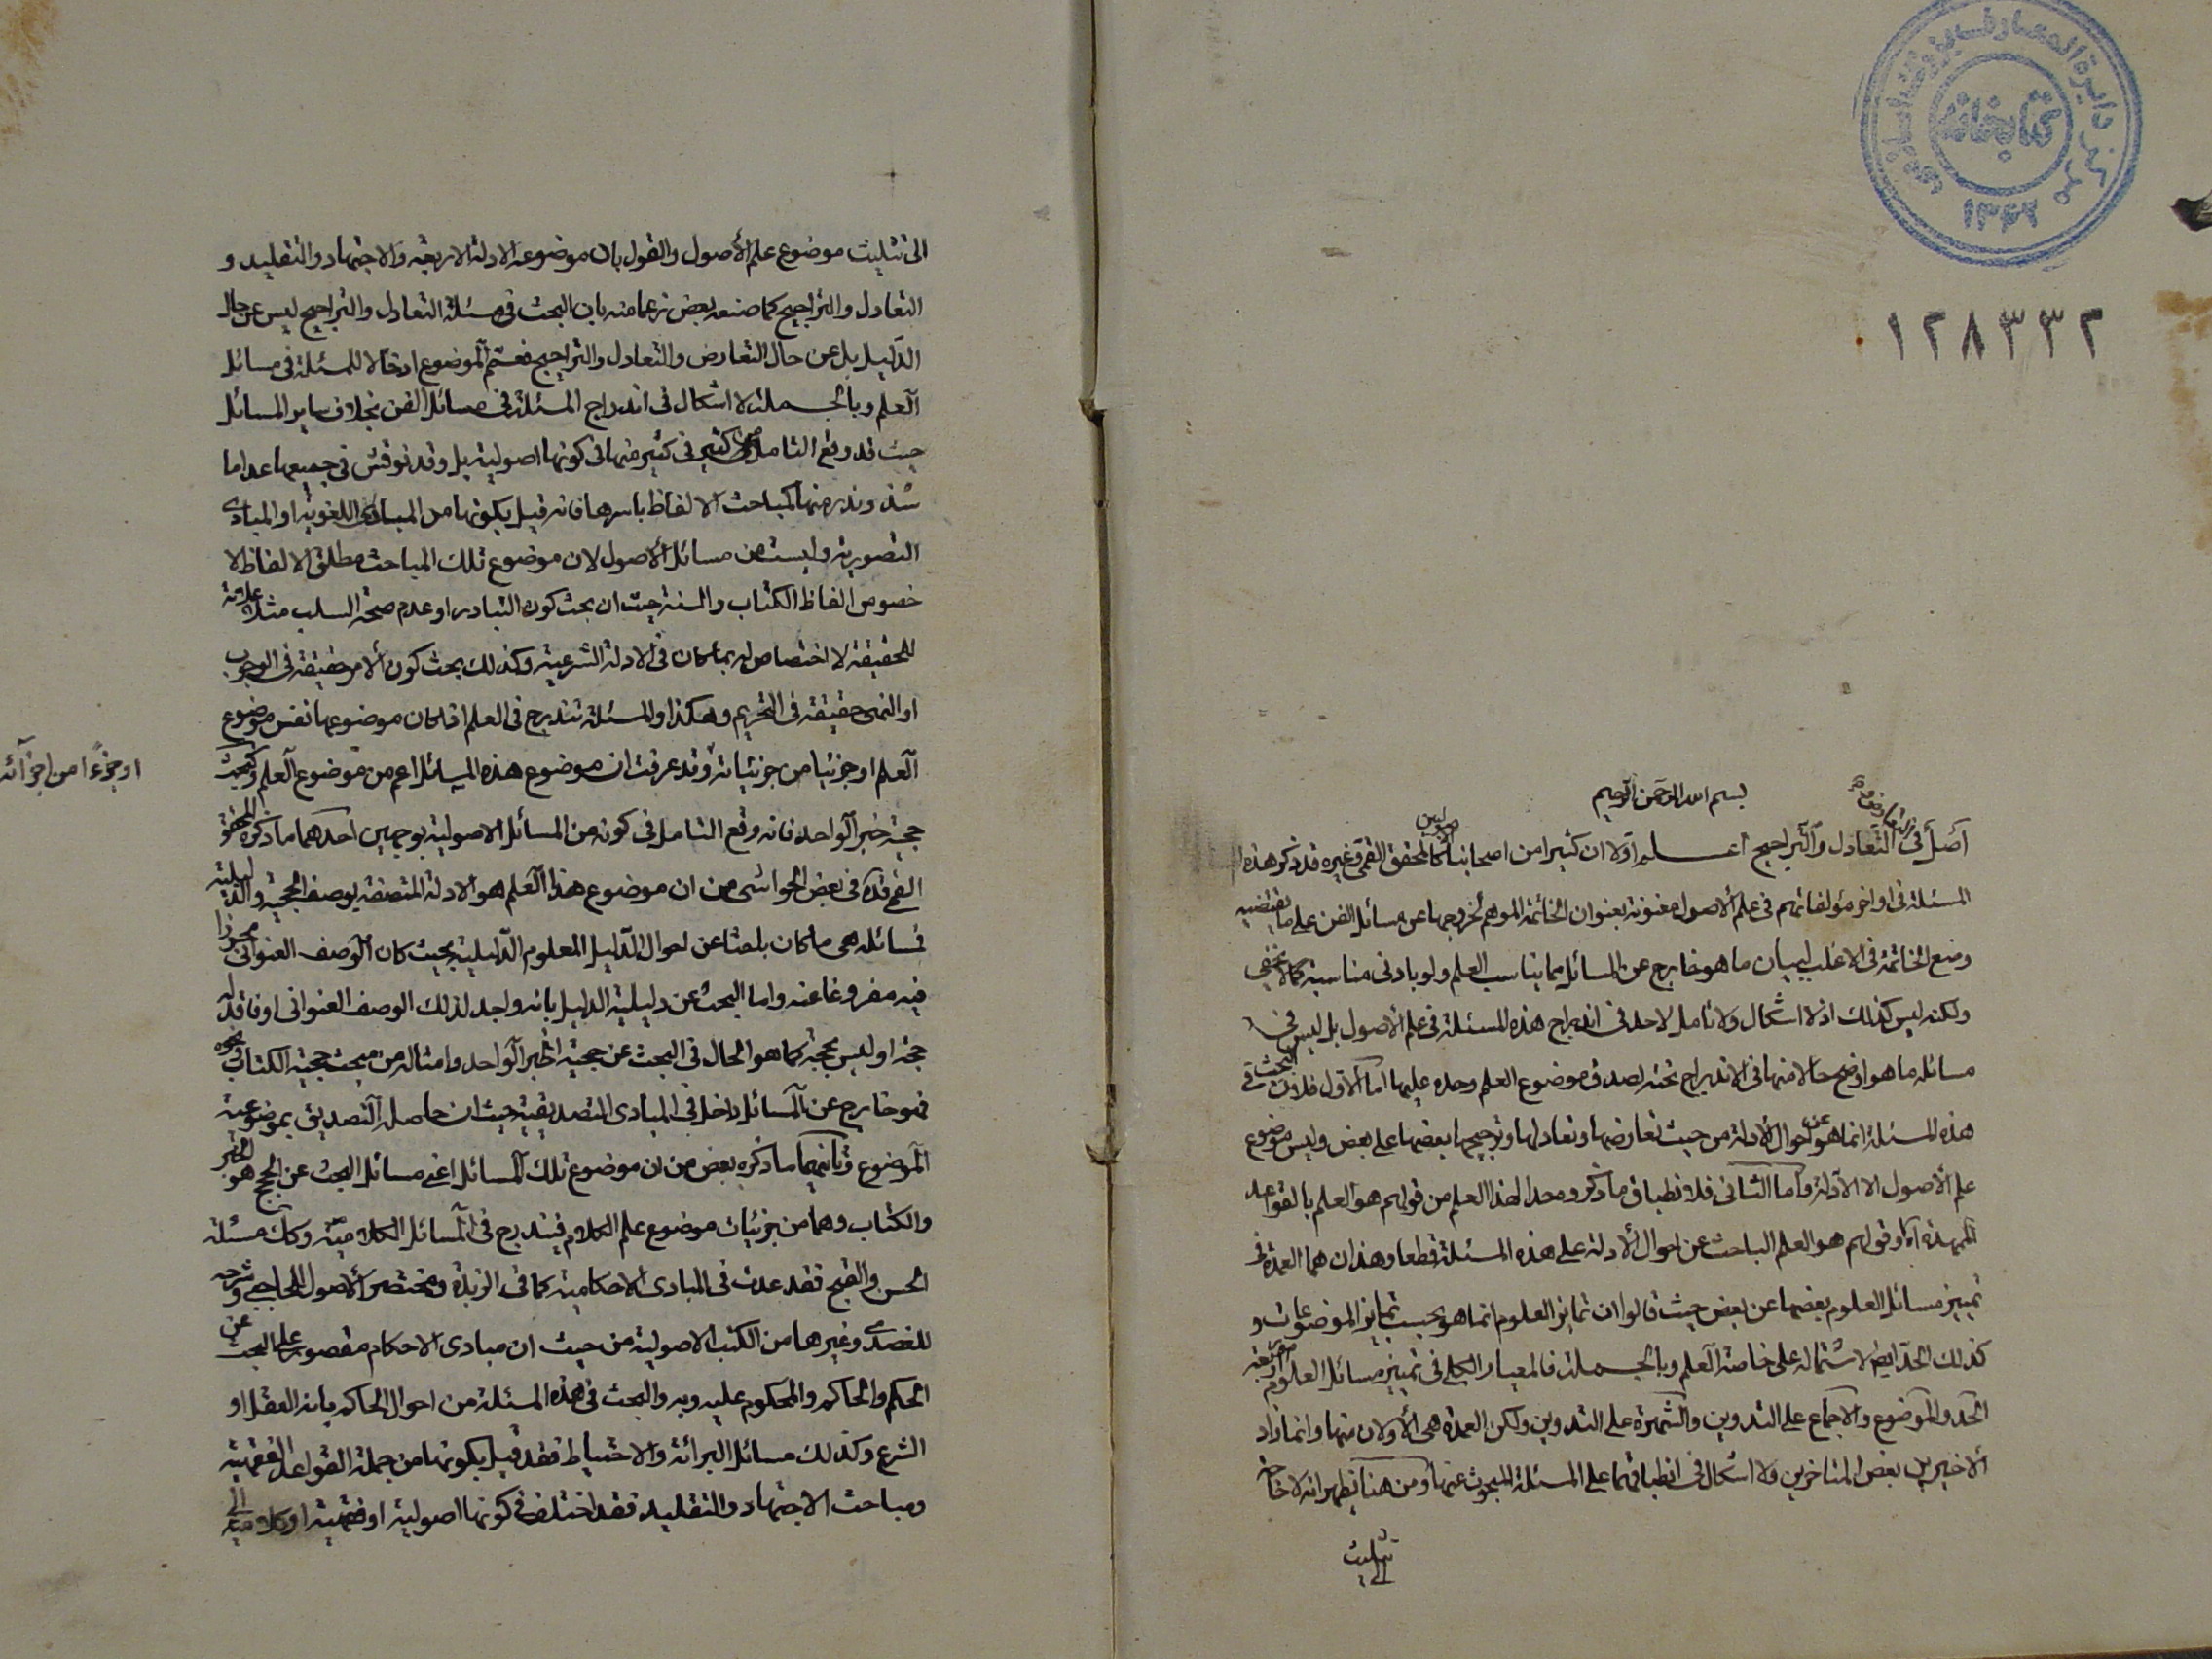 مركز دايرة المعارف بزرگ اسلامى
كتابخانه
١٣٦٢
١٢٨٣٣٢
بسم الله الرحمن الرحيم
اصل فى التعادل والتراجيح اعلم اولا ان كثيرا من اصحابنا الاصوليين كالمحقق القمى وغيره قد ذكر هذه
المسئلة فى اواخر مؤلفاتهم فى علم الاصول معنونة بعنوان الخاتمة الموهم لخروجها عن مسائل الفن على ما يقتضيه
وضع الخاتمة فى الاغلب لبيان ما هو خارج عن المسائل مما يناسب العلم ولو بادنى مناسبة كما لا يخفى
ولكنه ليس كذلك اذ لا اشكال ولا تامل لاحد فى اندراج هذه المسئلة فى علم الاصول بل ليس فى
مسائله ما هو اوضح حالا منها فى الاندراج تحته لصدق موضوع العلم وحده عليها اما الاول فلان البحث فى
هذه المسئلة انما هو عن احوال الادلة من حيث تعارضها وتعادلها وترجيحها بعضها على بعض وليس موضوع
علم الاصول الا الادلة واما الثانى فلانطباق ما ذكروه حدا لهذا العلم من قولهم هو العلم بالقواعد
الممهدة آه او قولهم هو العلم الباحث عن احوال الادلة على هذه المسئلة قطعا وهذان هما العمدة فى
تمييز مسائل العلوم بعضها عن بعض حيث قالوا ان تمايز العلوم انما هو بحسب تمايز الموضوعات و
كذلك الحد ايضا لاشتماله على خاصة العلم وبالجملة فالمعيار الكلى فى تمييز مسائل العلوم امور اربعة
الحد والموضوع والاجماع على التدوين والشهرة على التدوين ولكن العمدة هى الاولان منها وانما زاد
الاخيرين بعض المتاخرين ولا اشكال فى انطباقهما على المسئلة المبحوث عنها ومن هنا يظهر انه لا حاجة
الى تثليث
الى تثليث موضوع علم الاصول والقول بان موضوعه الادلة الاربعة والاجتهاد والتقليد و
التعادل والتراجيح كما صنعه بعض زعما منه بان البحث فى مسئلة التعادل والتراجيح ليس عن حال
الدليل بل عن حال التعارض والتعادل والتراجيح فعمم الموضوع ادخالا للمسئلة فى مسائل
العلم وبالجملة لا اشكال فى اندراج المسئلة فى مسائل الفن بخلاف ساير المسائل
حيث قد وقع التامل من كثير فى كثير منها فى كونها اصولية بل وقد نوقش فى جميعها عدا ما
شذ وندر منها كمباحث الالفاظ باسرها فانه قيل بكونها من المبادى اللغوية او المبادى
التصورية وليست من مسائل الاصول لان موضوع تلك المباحث مطلق الالفاظ لا
خصوص الفاظ الكتاب والسنة حيث ان بحث كون التبادر او عدم صحة السلب مثلا علامة
للحقيقة لا اختصاص له بما كان فى الادلة الشرعية وكذلك بحث كون الامر حقيقة فى الوجوب
او النهى حقيقة فى التحريم وهكذا والمسئلة تندرج فى العلم اذا كان موضوعها نفس موضوع
العلم او جزئيا من جزئياته وقد عرفت ان موضوع هذه المسائل اعم من موضوع العلم وكمبحث
او جزءا من اجزائه
حجية خبر الواحد فانه وقع التامل فى كونه من المسائل الاصولية بوجهين احدهما ما ذكره المحقق
القمى قده فى بعض الحواشى من ان موضوع هذا العلم هو الادلة المتصفة بوصف الحجية والدليلية
فمسائله هى ما كان باحثا عن احوال الدليل المعلوم الدليلية بحيث كان الوصف العنوانى محرزا
فيه مفروغا عنه واما البحث عن دليلية الدليل بانه واجد لذلك الوصف العنوانى او فاقد له
حجة او ليس بحجة كما هو الحال فى البحث عن حجية الخبر الواحد وامثاله من مبحث حجية الكتاب ونحوه
فهو خارج عن المسائل داخل فى المبادى التصديقية حيث ان حاصله التصديق بموضوعية
الموضوع وثانيهما ما ذكره بعض من ان موضوع تلك المسائل اعنى مسائل البحث عن الحجج هو الخبر
والكتاب وهما من جزئيات موضوع علم الكلام فيندرج فى المسائل الكلامية وكك مسئلة
الحسن والقبح فقد عدت فى المبادى الاحكامية كما فى الزبدة ومختصر الاصول للحاجبى وشرحه
للعضدى وغيرها من الكتب الاصولية من حيث ان مبادى الاحكام مقصور على البحث عن
الحكم والحاكم والمحكوم عليه وبه والبحث فى هذه المسئلة من احوال الحاكم بانه العقل او
الشرع وكذلك مسائل البرائة والاحتياط فقد قيل بكونها من جملة القواعد الفقهية
ومباحث الاجتهاد والتقليد فقد اختلف فى كونها اصولية او فقهية او كلامية الى